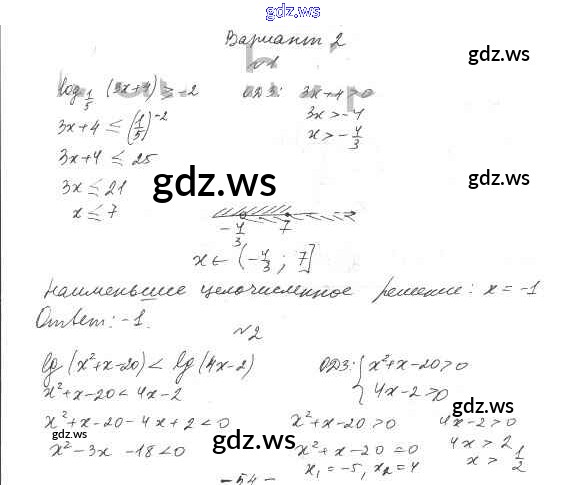 gdz.ws
gdz.ws
Вариант 2
gdz.ws
№1
log_{1/5} (3x+4) ≥ -2   ОДЗ: 3x+4>0
3x+4 ≤ (1/5)^{-2}   3x>-4
x>-4/3
3x+4 ≤ 25
3x ≤ 21
gdz.ws
gdz.ws
x ≤ 7
-4/3   7
x ∈ (-4/3 ; 7]
Наименьшее целочисленное решение: x = -1
Ответ: -1.
№2
lg (x²+x-20) < lg (4x-2)   ОДЗ: { x²+x-20>0
4x-2>0
x²+x-20 < 4x-2
gdz.ws
x²+x-20-4x+2<0   x²+x-20>0   4x-2>0
gdz.ws
gdz.ws
x²-3x-18<0   x²+x-20=0   4x>2
x₁=-5, x₂=4   x>1/2
gdz.ws
-54-